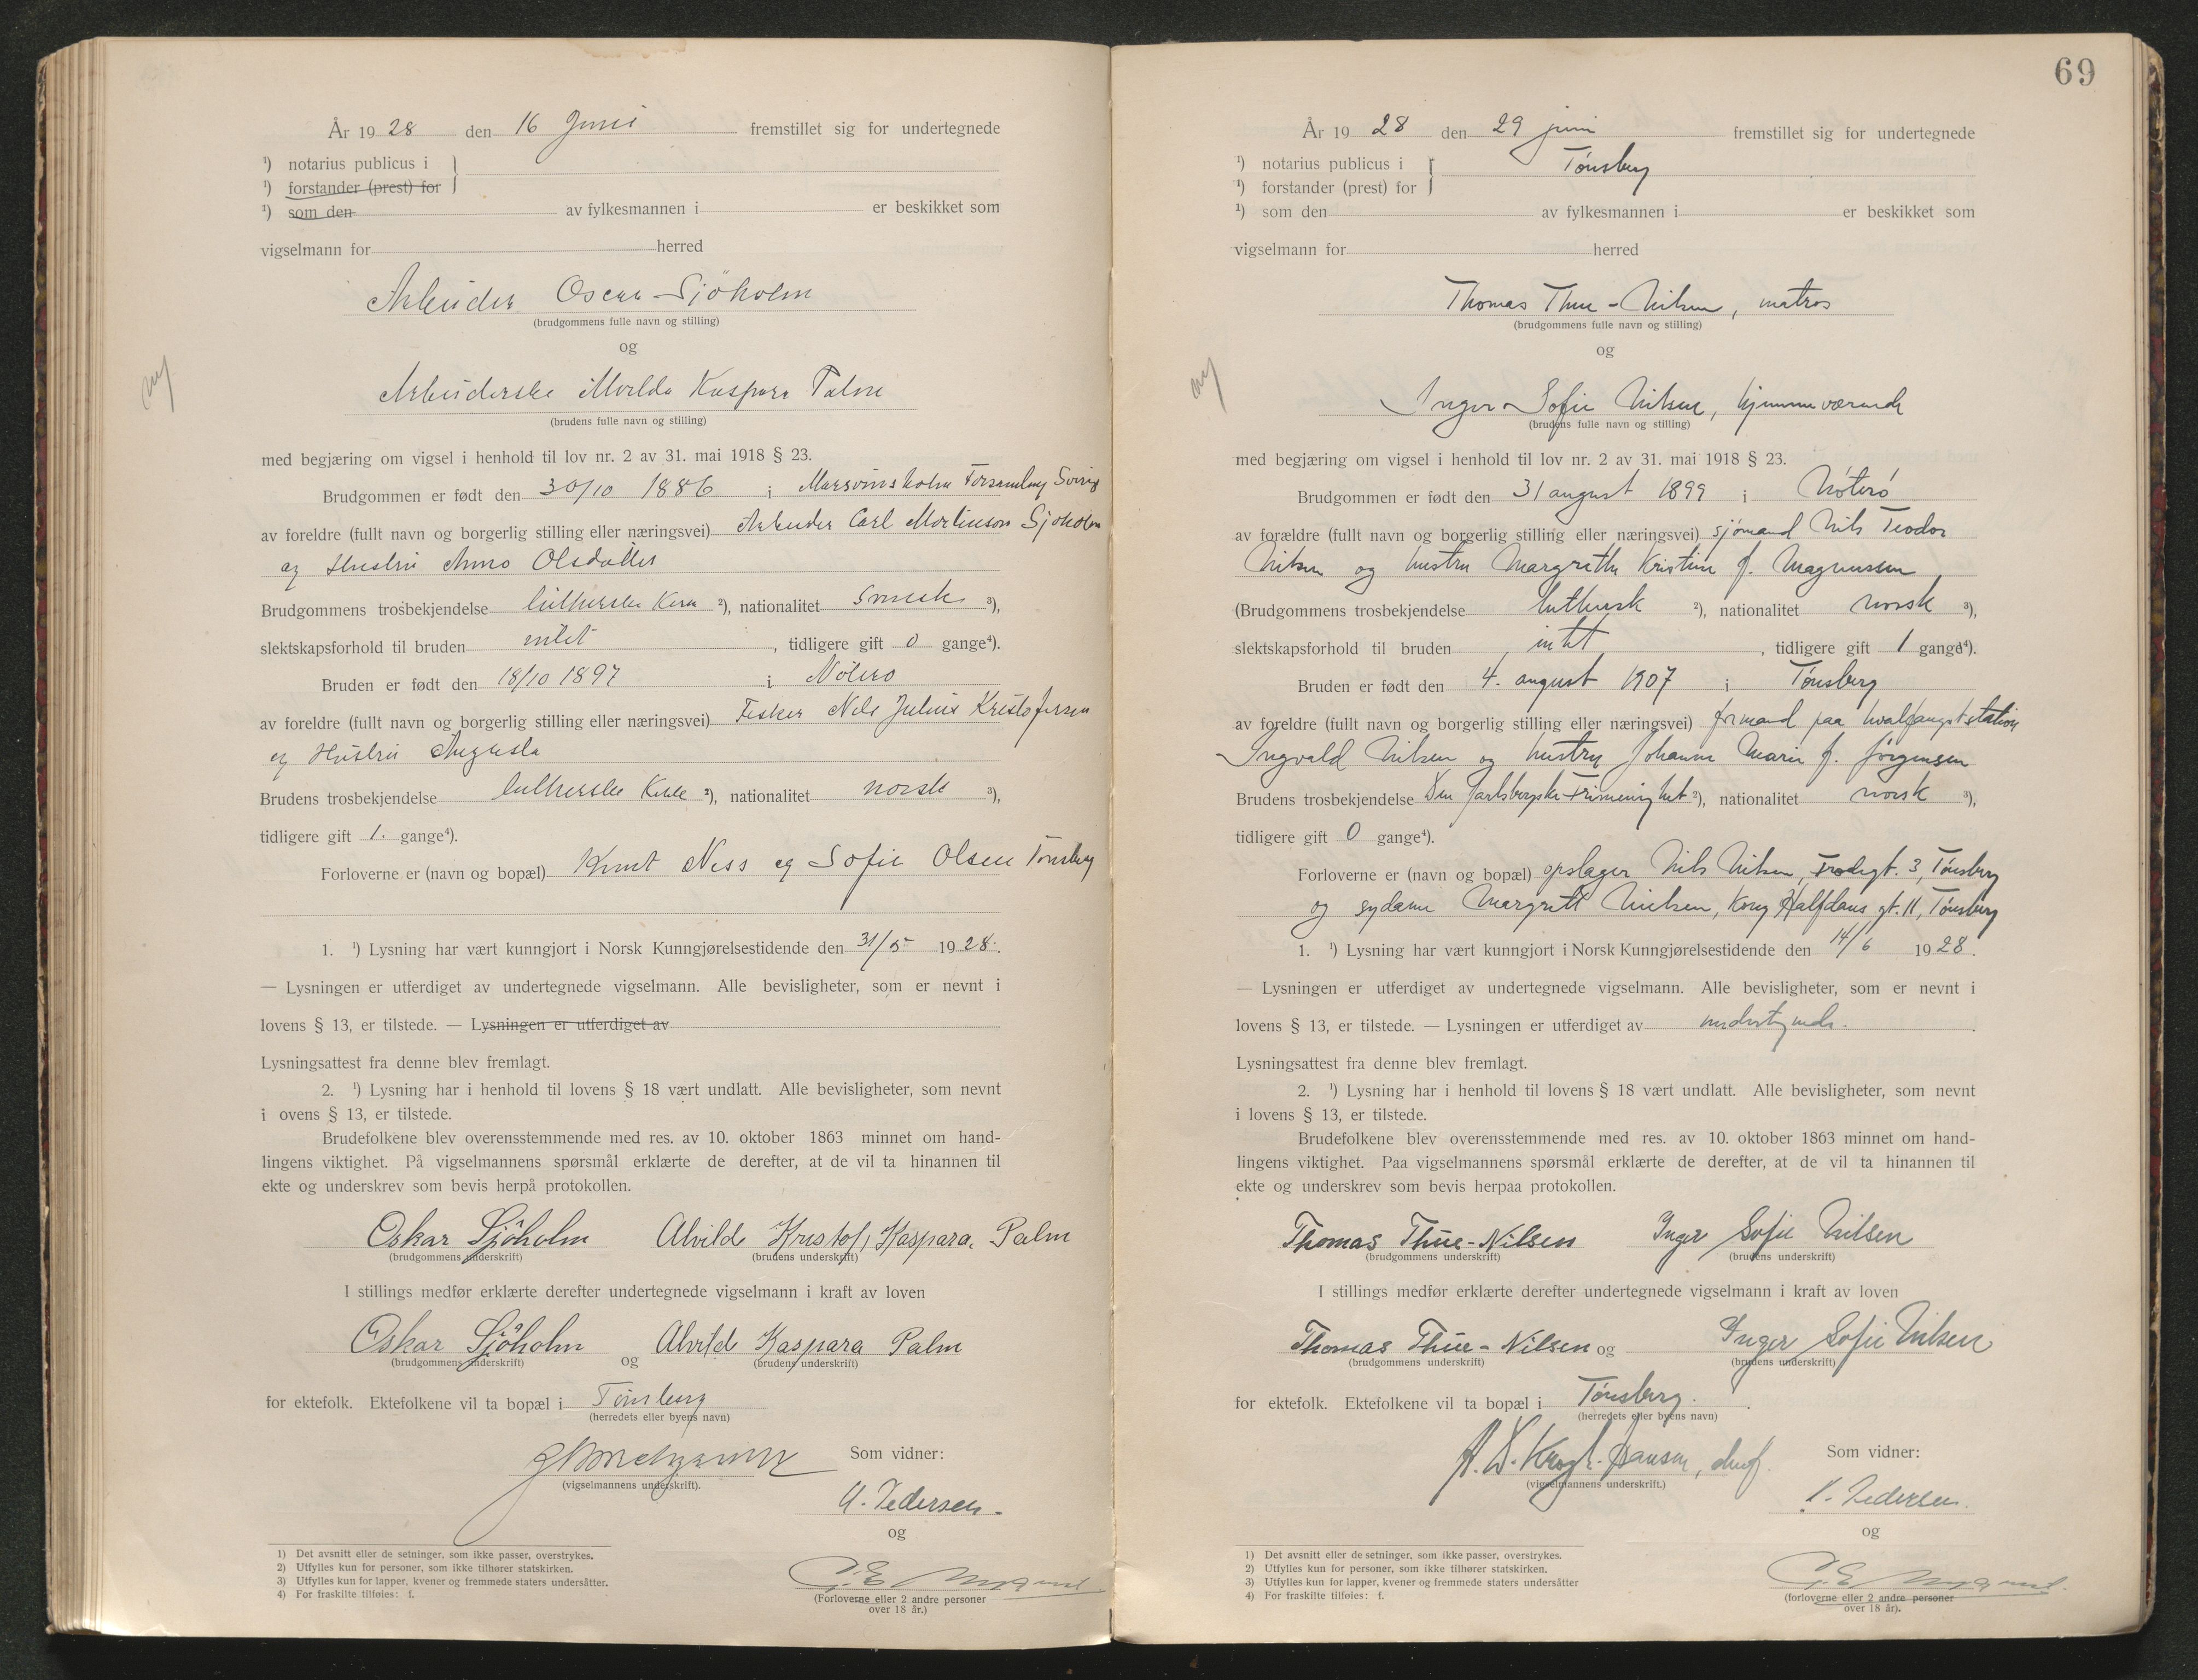 År 1928 den 16 Juni fremstillet sig for undertegnede
¹) notarius publicus i
¹) forstander (prest) for
¹) som den av fylkesmannen i er beskikket som
vigselmann for herred
Arbeider Oscar Sjöholm
(brudgommens fulle navn og stilling)
og
Arbeiderske Alvilda Kaspara Palm
(brudens fulle navn og stilling)
med begjæring om vigsel i henhold til lov nr. 2 av 31. mai 1918 § 23.
Brudgommen er født den 30/10 1886 i Marsvinsholm Forsamling Sverig
av foreldre (fullt navn og borgerlig stilling eller næringsvei) Arbeider Carl Mortinson Sjöholm
og Hustru Anna Olsdatter
Brudgommens trosbekjendelse lutherske Kirke ²), nationalitet svensk ³),
slektskapsforhold til bruden intet, tidligere gift 0 gange⁴).
Bruden er født den 18/10 1897 i Nøterø
av foreldre (fullt navn og borgerlig stilling eller næringsvei) Fisker Nils Julius Kristofersen
og Hustru Augusta
Brudens trosbekjendelse lutherske Kirke ²), nationalitet norsk ³),
tidligere gift 1. gange⁴).
Forloverne er (navn og bopæl) Knut Ness og Sofie Olsen Tønsberg
1. ¹) Lysning har vært kunngjort i Norsk Kunngjørelsestidende den 31/5 1928.
— Lysningen er utferdiget av undertegnede vigselmann. Alle bevisligheter, som er nevnt i
lovens § 13, er tilstede. — Lysningen er utferdiget av
Lysningsattest fra denne blev fremlagt.
2. ¹) Lysning har i henhold til lovens § 18 vært undlatt. Alle bevisligheter, som nevnt
i ovens § 13, er tilstede.
Brudefolkene blev overensstemmende med res. av 10. oktober 1863 minnet om hand-
lingens viktighet. På vigselmannens spørsmål erklærte de derefter, at de vil ta hinannen til
ekte og underskrev som bevis herpå protokollen.
Oskar Sjöholm Alvilde Kristof, Kaspara, Palm
(brudgommens underskrift) (brudens underskrift)
I stillings medfør erklærte derefter undertegnede vigselmann i kraft av loven
Oskar Sjöholm og Alvild Kaspara Palm
(brudgommens underskrift) (brudens underskrift)
for ektefolk. Ektefolkene vil ta bopæl i Tønsberg
(herredets eller byens navn)
Som vidner:
(vigselmannens underskrift).
A. Pedersen.
og
(Forloverne eller 2 andre personer
over 18 år.)
1) Det avsnitt eller de setninger, som ikke passer, overstrykes.
2) Utfylles kun for personer, som ikke tilhører statskirken.
3) Utfylles kun for lapper, kvener og fremmede staters undersåtter.
4) For fraskilte tilføies: f.
69
År 1928 den 29 juni fremstillet sig for undertegnede
¹) notarius publicus i Tønsberg
¹) forstander (prest) for
¹) som den av fylkesmannen i er beskikket som
vigselmann for herred
Thomas Thue-Nilsen, matros
(brudgommens fulle navn og stilling)
og
Inger Sofie Nilsen, hjemmeværende
(brudens fulle navn og stilling)
med begjæring om vigsel i henhold til lov nr. 2 av 31. mai 1918 § 23.
Brudgommen er født den 31 august 1899 i Nøterø
av forældre (fullt navn og borgerlig stilling eller næringsvei) sjømand Nils Teodor
Nilsen og hustru Margrethe Kristine f. Magnussen
(Brudgommens trosbekjendelse luthersk ²), nationalitet norsk ³),
slektskapsforhold til bruden intet, tidligere gift 1 gange⁴).
Bruden er født den 4. august 1907 i Tønsberg
av foreldre (fullt navn og borgerlig stilling eller næringsvei) formand paa hvalfangststation
Ingvald Nilsen og hustru Johanne Marie f. Jørgensen
Brudens trosbekjendelse Den Jarlsbergske Frimenighet ²), nationalitet norsk ³),
tidligere gift 0 gange⁴).
Forloverne er (navn og bopæl) opslager Nils Nilsen, Frodegt. 3, Tønsberg
og sydame Margrett Nielsen, Kong Halfdans gt. 11, Tønsberg
1. ¹) Lysning har vært kunngjort i Norsk Kunngjørelsestidende den 14/6 1928.
— Lysningen er utferdiget av undertegnede vigselmann. Alle bevisligheter, som er nevnt i
lovens § 13, er tilstede. — Lysningen er utferdiget av undertegnede.
Lysningsattest fra denne blev fremlagt.
2. ¹) Lysning har i henhold til lovens § 18 vært undlatt. Alle bevisligheter, som nevnt
i lovens § 13, er tilstede.
Brudefolkene blev overensstemmende med res. av 10. oktober 1863 minnet om hand-
lingens viktighet. Paa vigselmannens spørsmål erklærte de derefter, at de vil ta hinannen til
ekte og underskrev som bevis herpaa protokollen.
Thomas Thue-Nilsen Inger Sofie Nilsen
(brudgommens underskrift) (brudens underskrift)
I stillings medfør erklærte derefter undertegnede vigselmann i kraft av loven
Thomas Thue-Nilsen og Inger Sofie Nilsen
(brudgommens underskrift) (brudens underskrift)
for ektefolk. Ektefolkene vil ta bopæl i Tønsberg.
(herredets eller byens navn)
A. D. Krogh-Hansen, Som vidner:
(vigselmannens underskrift.)
A. Pedersen.
og
(forloverne eller 2 andre personer
over 18 år).
1) Det avsnitt eller de setninger, som ikke passer, overstrykes.
2) Utfylles kun for personer, som ikke tilhører statskirken.
3) Utfylles kun for lapper, kvener og fremmede staters undersåtter
4) For fraskilte tilføies: f.